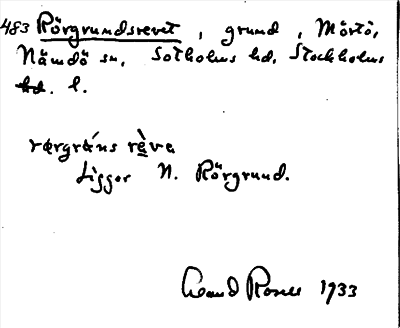 483 Rörgrundsrevet, grund, Mörtö,
Nämdö sn, Sotholms hd, Stockholms
l.
rørgrǻns rɛ̀vɛ
Ligger N. Rörgrund.
1933